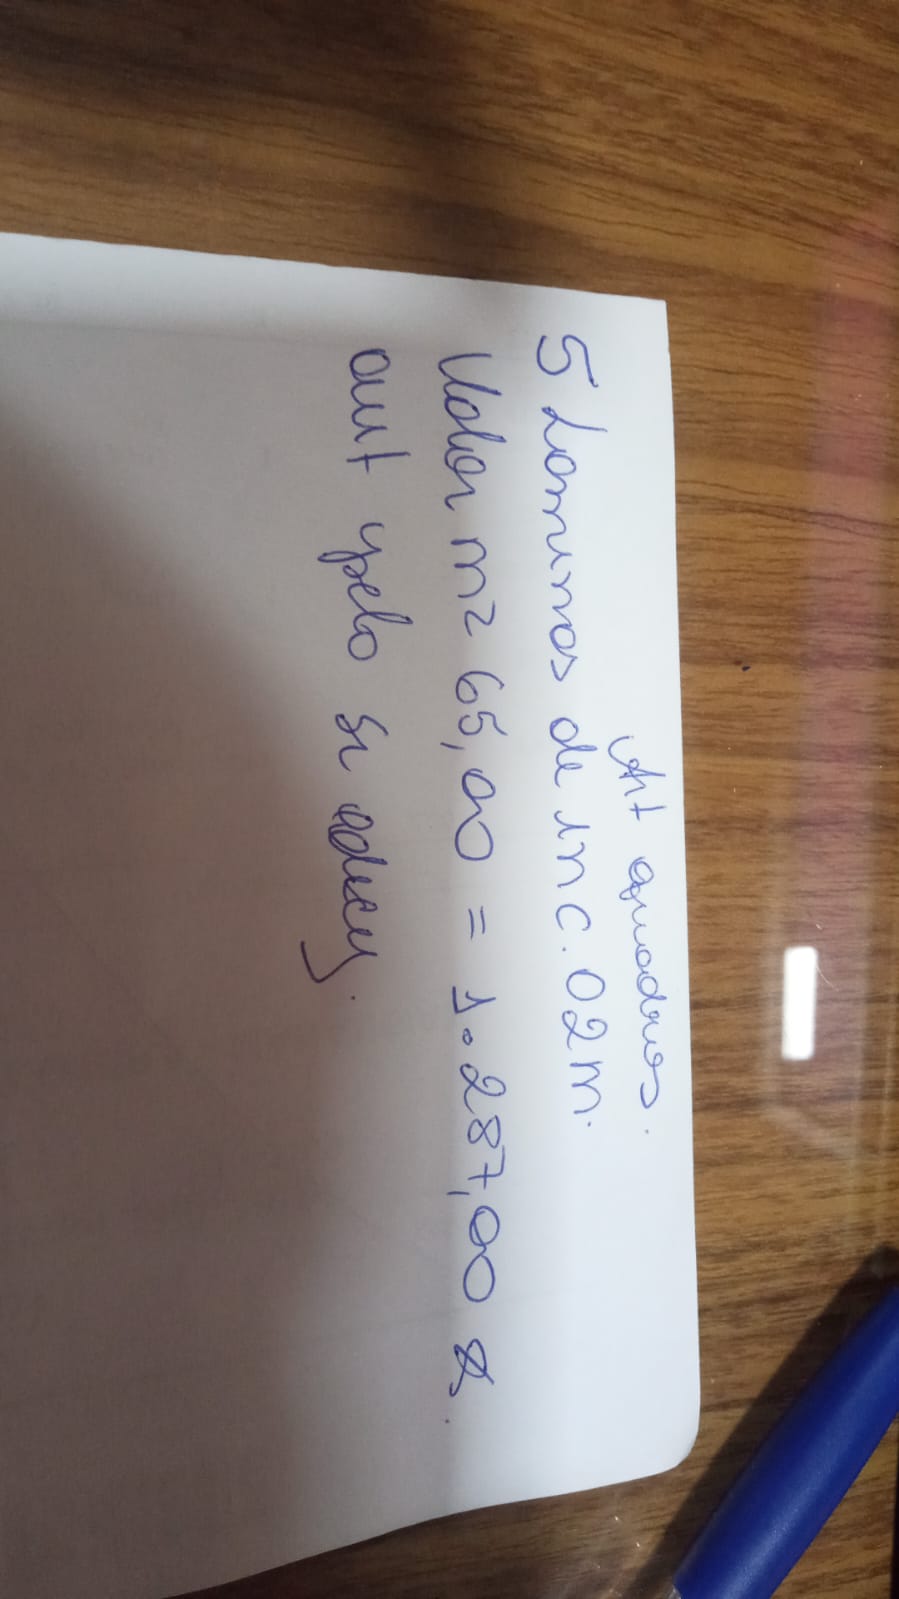 Art quadros.
5 Laminas de inc. 02 m.
Valor m2 65,00 = 1.287,00
aut pelo sr